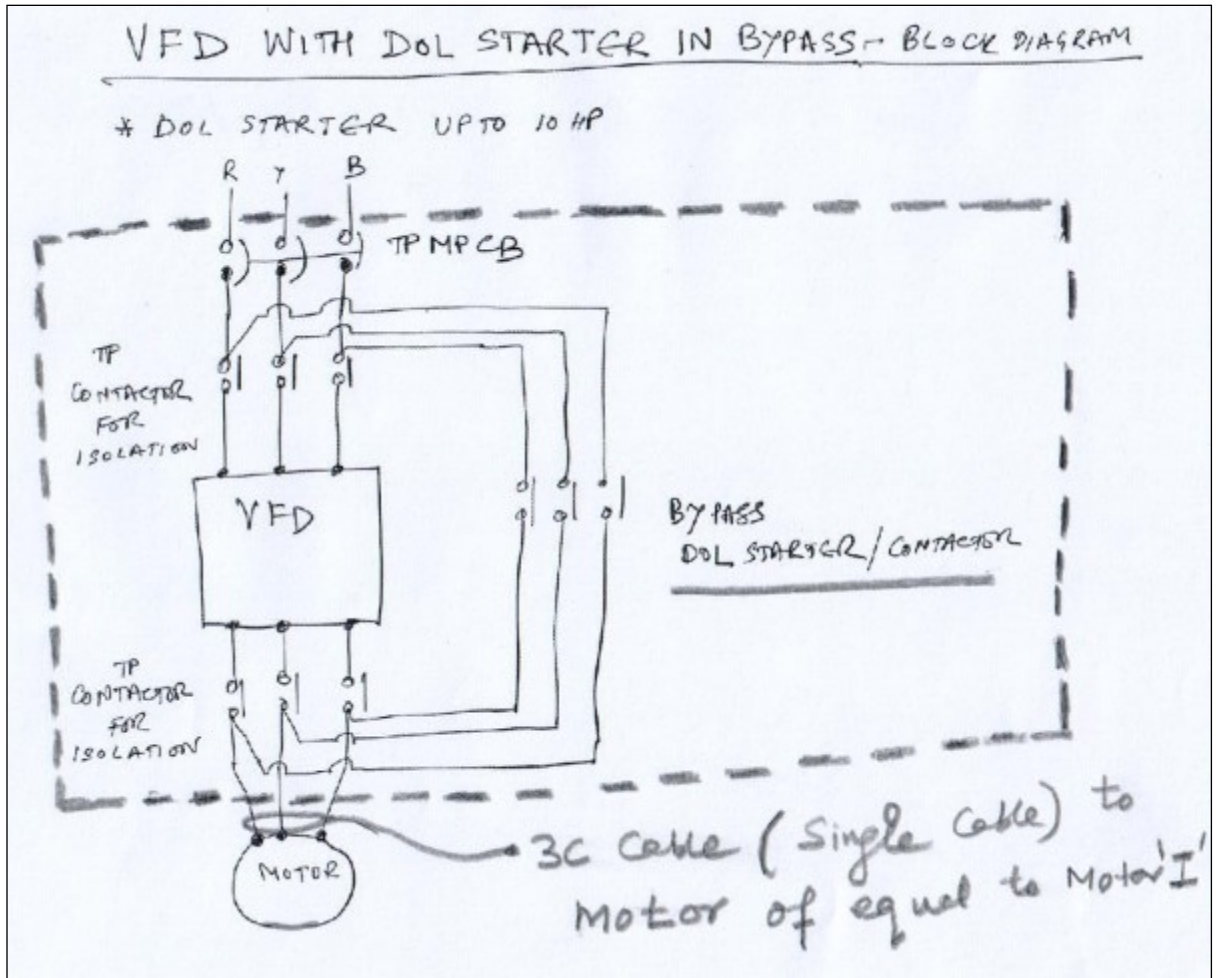 VFD WITH DOL STARTER IN BYPASS - BLOCK DIAGRAM
* DOL STARTER UPTO 10 HP
R Y B
TP MPCB
TP
CONTACTOR
FOR
ISOLATION
VFD
BYPASS
DOL STARTER/CONTACTOR
TP
CONTACTOR
FOR
ISOLATION
MOTOR
3C Cable (Single Cable) to
Motor of equal to Motor 'I'